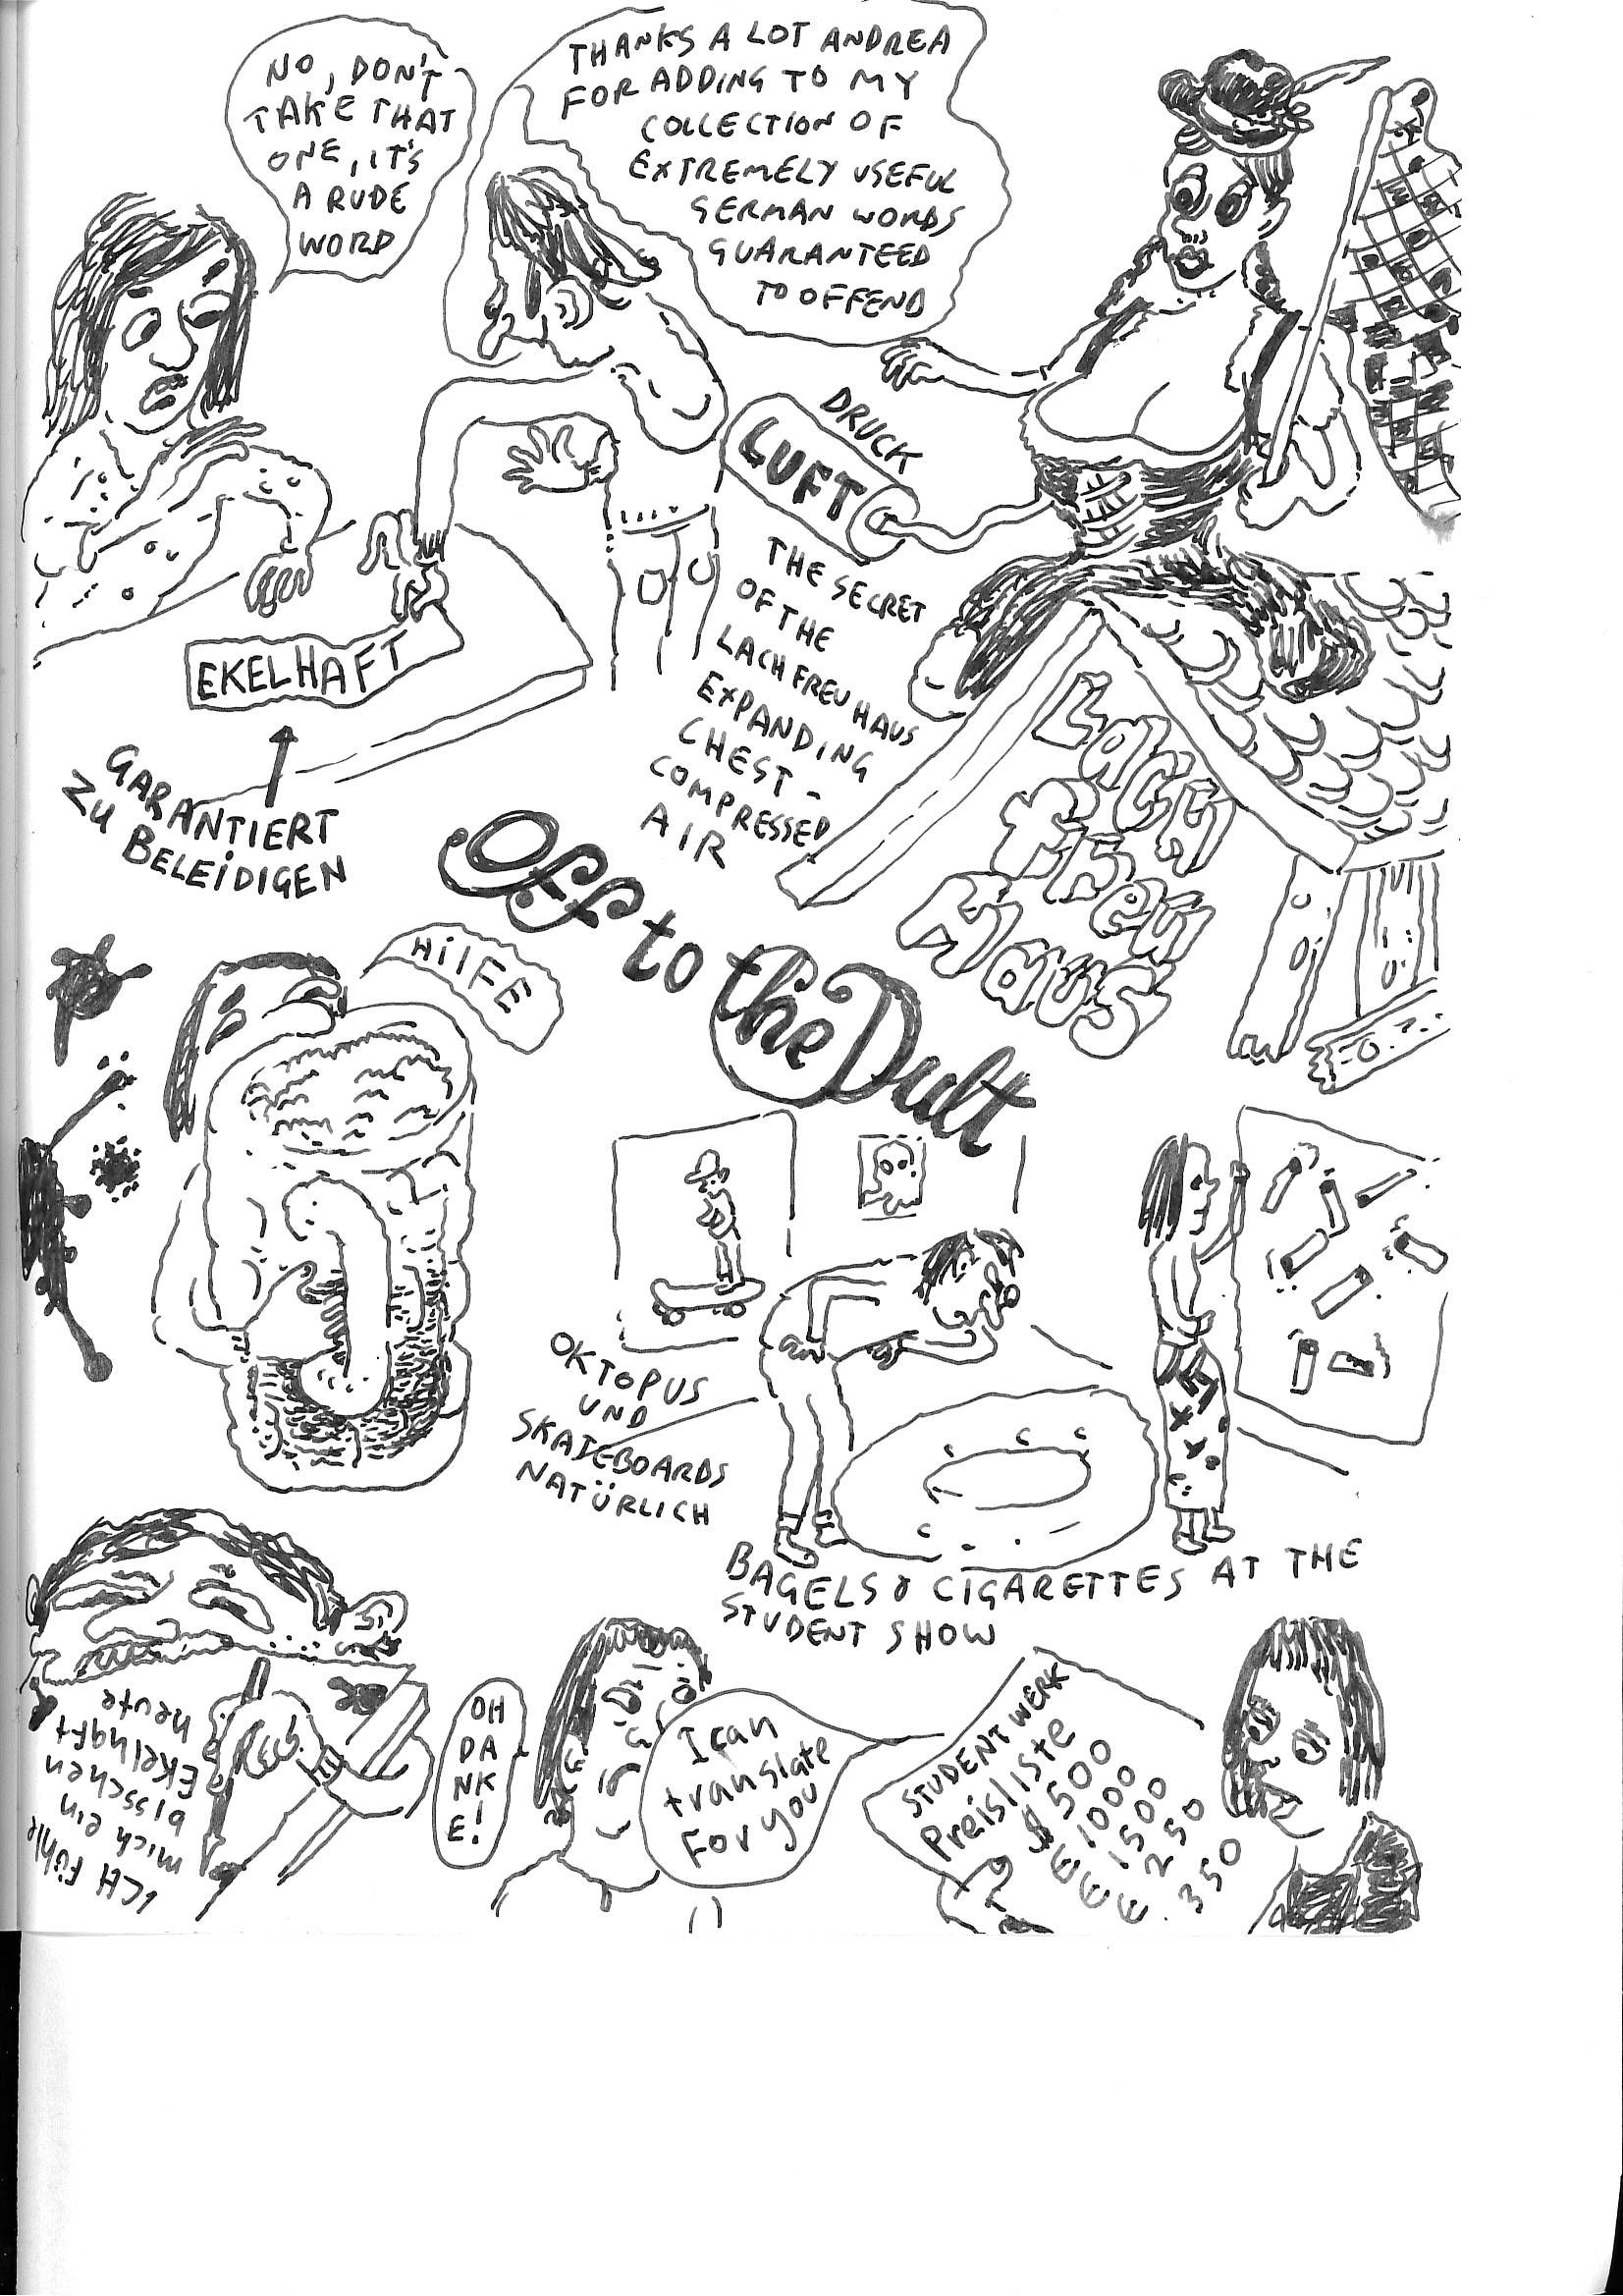 NO, DON'T
TAKE THAT
ONE, IT'S
A RUDE
WORD
THANKS A LOT ANDREA
FOR ADDING TO MY
COLLECTION OF
EXTREMELY USEFUL
GERMAN WORDS
GUARANTEED
TO OFFEND
EKELHAFT
GARANTIERT
ZU BELEIDIGEN
DRUCK
LUFT
THE SECRET
OF THE
LACH FREU HAUS
EXPANDING
CHEST -
COMPRESSED
AIR
Lach
Freu
Haus
Off to the Dult
HILFE
OKTOPUS
UND
SKATEBOARDS
NATÜRLICH
BAGELS & CIGARETTES AT THE
STUDENT SHOW
ICH fühle
mich ein
bisschen
Ekelhaft
heute
OH
DA
NK
E!
I can
translate
For you
STUDENT WERK
Preisliste
$ 500
€ 1000
€ 1500
€ 250
€ . 350